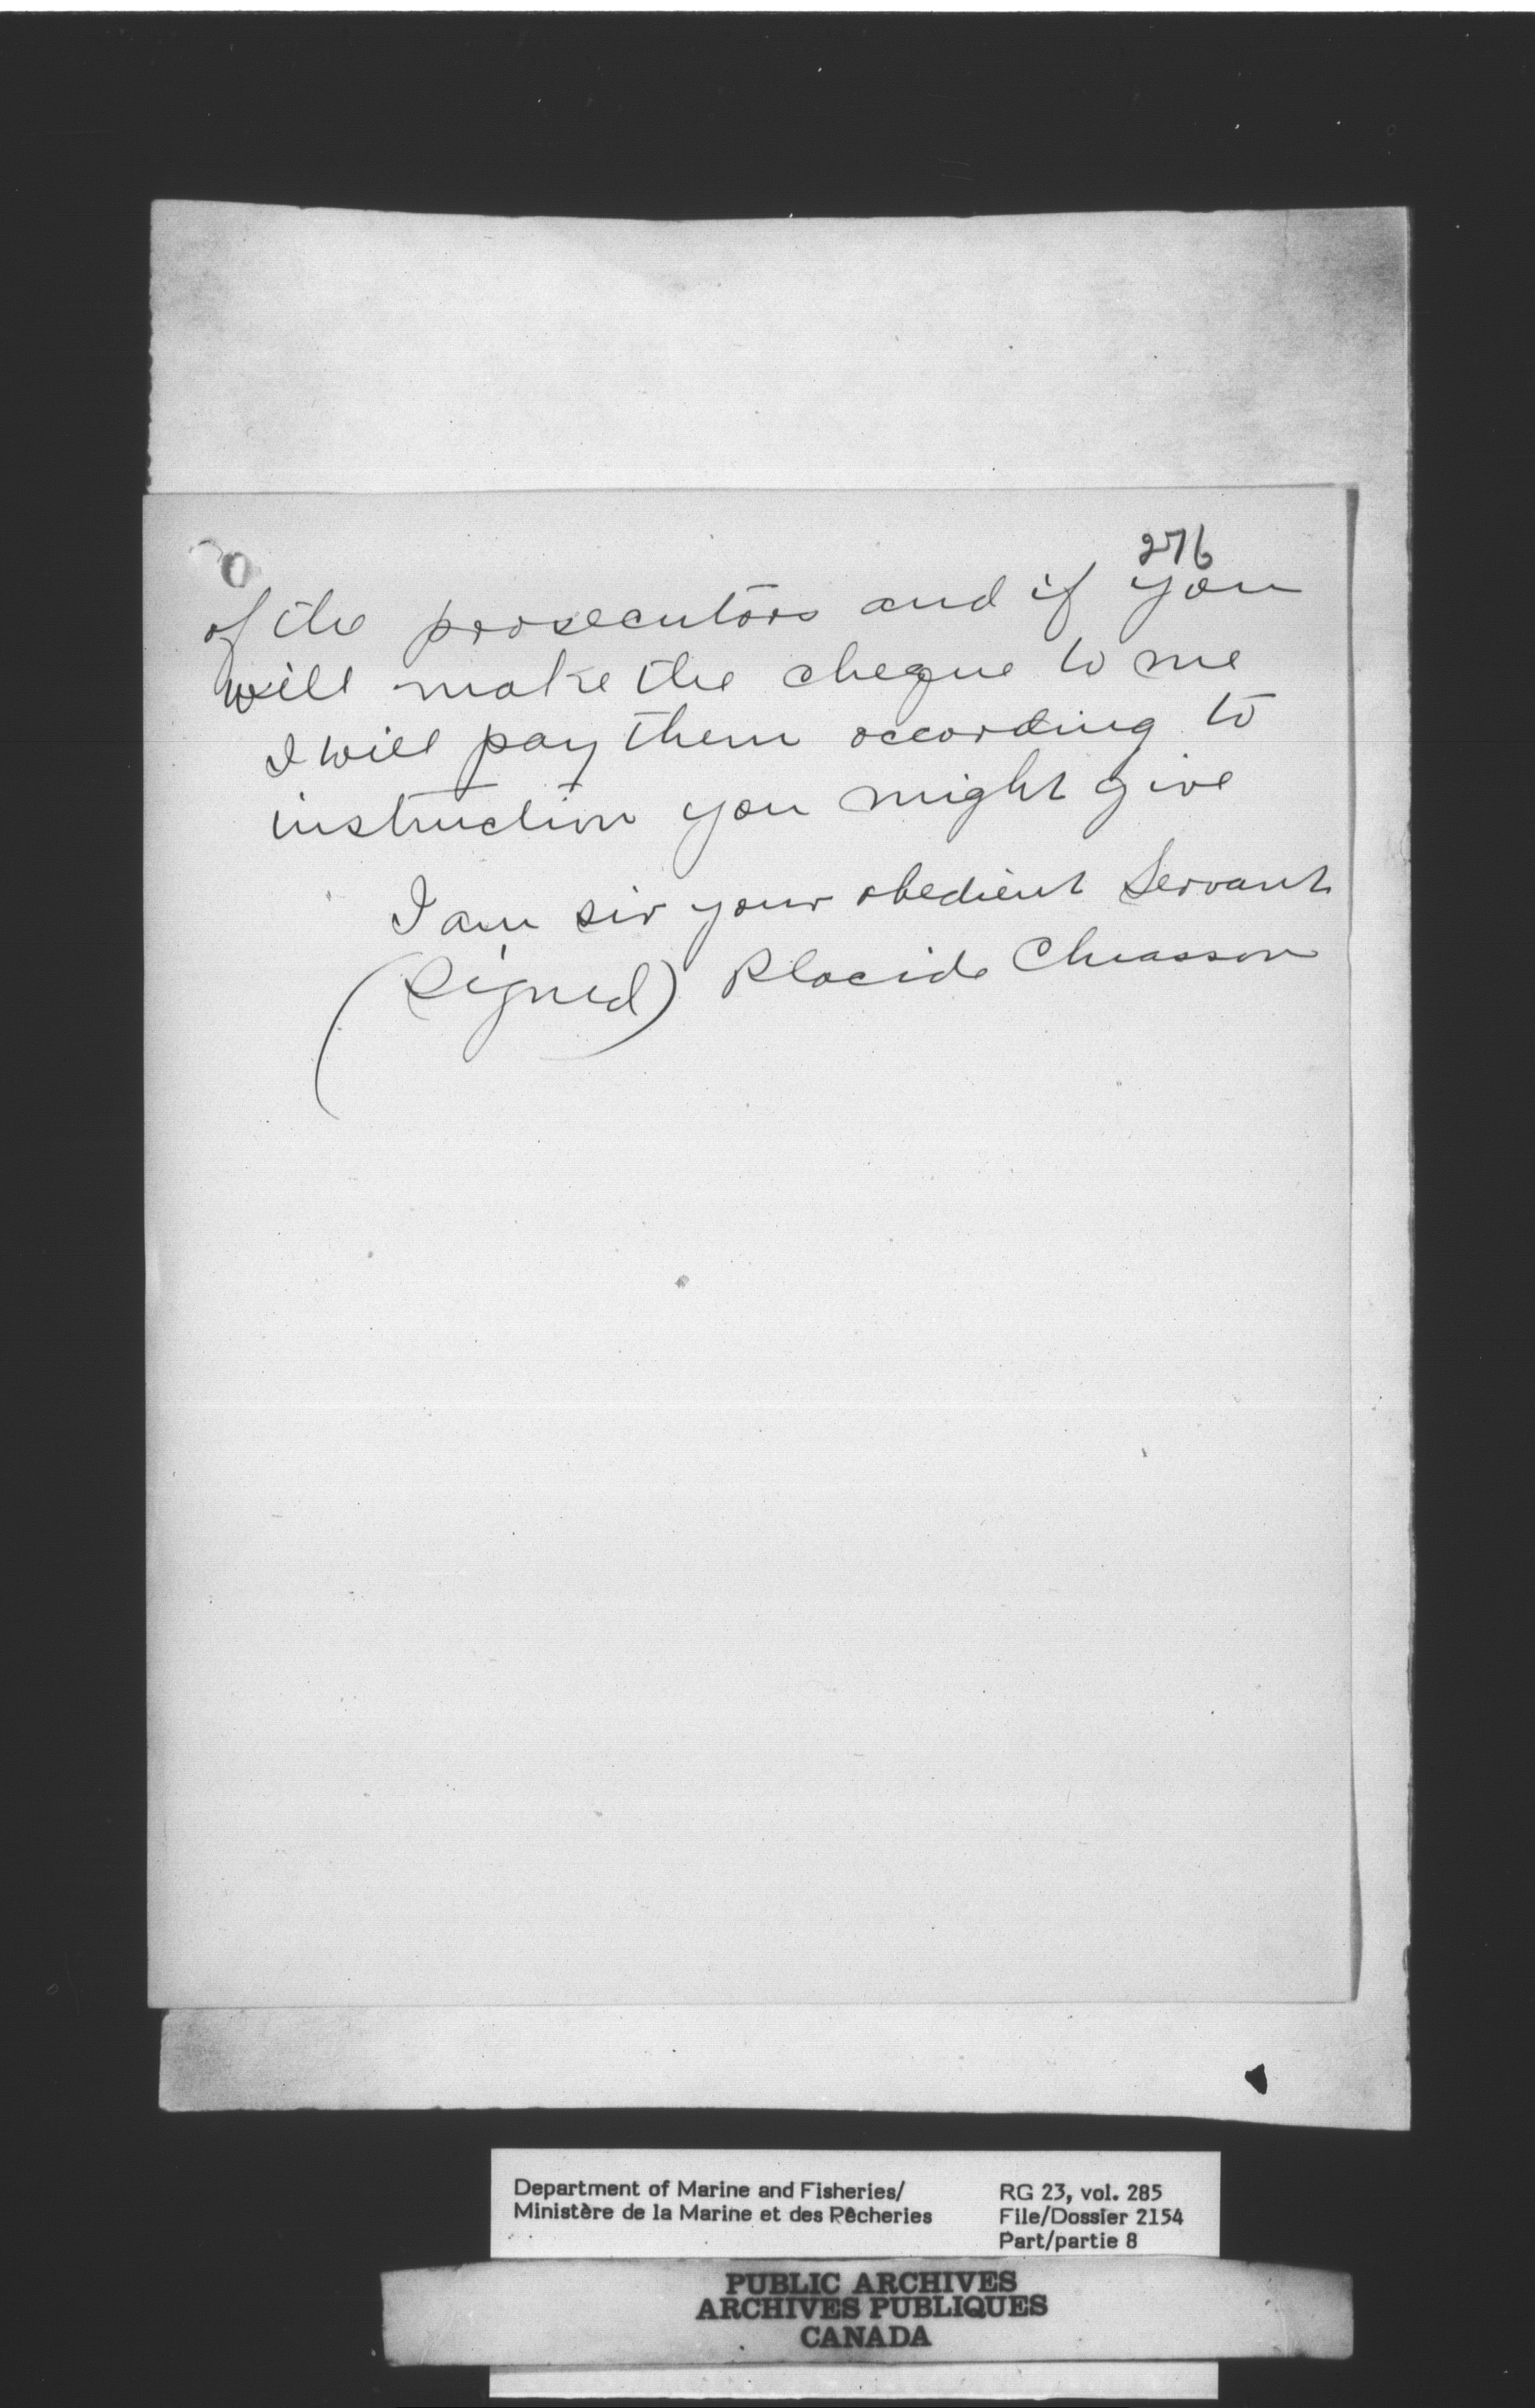 276
of the prosecutors and if you
will make the cheque to me
I will pay them according to
instruction you might give
I am sir your obedient Servant
(Signed) Placide Chiasson
Department of Marine and Fisheries/
Ministère de la Marine et des Pêcheries
RG 23, vol. 285
File/Dossier 2154
Part/partie 8
PUBLIC ARCHIVES
ARCHIVES PUBLIQUES
CANADA